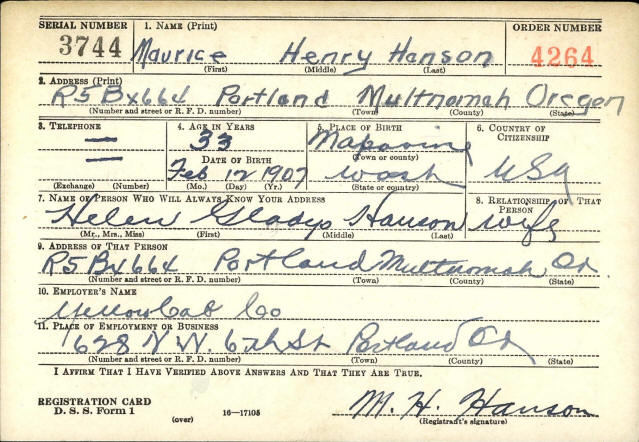 SERIAL NUMBER 1. NAME (Print) ORDER NUMBER
3744 Maurice Henry Hanson 4264
(First) (Middle) (Last)
2. ADDRESS (Print)
R5 Bx664 Portland Multnomah Oregon
(Number and street or R. F. D. number) (Town) (County) (State)
3. TELEPHONE 4. AGE IN YEARS 5. PLACE OF BIRTH 6. COUNTRY OF CITIZENSHIP
— 33
(Town or county)
— DATE OF BIRTH
Feb 12 1907 Wash USA
(Exchange) (Number) (Mo.) (Day) (Yr.) (State or country)
7. NAME OF PERSON WHO WILL ALWAYS KNOW YOUR ADDRESS 8. RELATIONSHIP OF THAT PERSON
Helen Gladys Hanson wife
(Mr., Mrs., Miss) (First) (Middle) (Last)
9. ADDRESS OF THAT PERSON
R5 Bx664 Portland Multnomah Or.
(Number and street or R. F. D. number) (Town) (County) (State)
10. EMPLOYER'S NAME
Yellow Cab Co
11. PLACE OF EMPLOYMENT OR BUSINESS
628 N W. 6th St Portland Or
(Number and street or R. F. D. number) (Town) (County) (State)
I AFFIRM THAT I HAVE VERIFIED ABOVE ANSWERS AND THAT THEY ARE TRUE.
REGISTRATION CARD
D. S. S. Form 1 16—17105 M. H. Hanson
(over) (Registrant's signature)